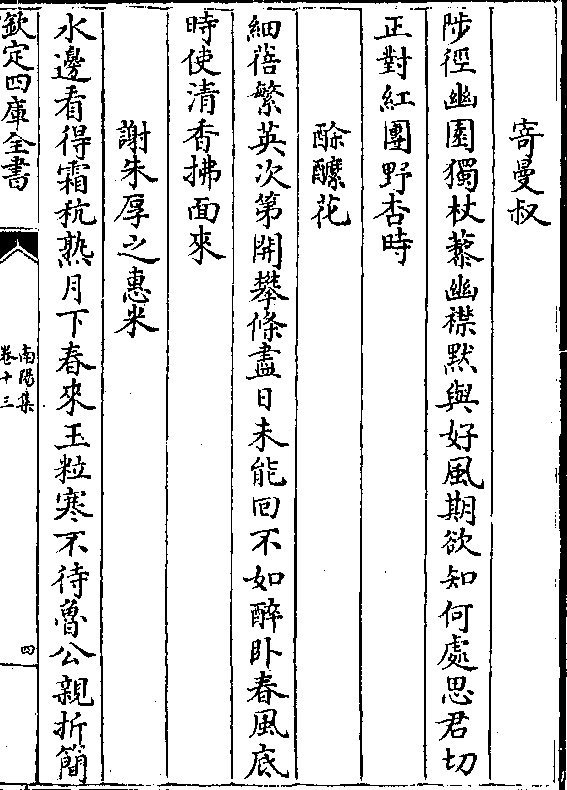 寄曼叔
陟徑幽園獨杖藜幽襟默與好風期欲知何處思君切
正對紅團野杏時
酴醿花
細蓓繁英次第開攀條盡日未能回不如醉卧春風底
時使清香拂面來
謝朱厚之惠米
水邊看得霜秔熟月下舂來玉粒寒不待魯公親折簡
欽定四庫全書
南陽集
卷十三
四